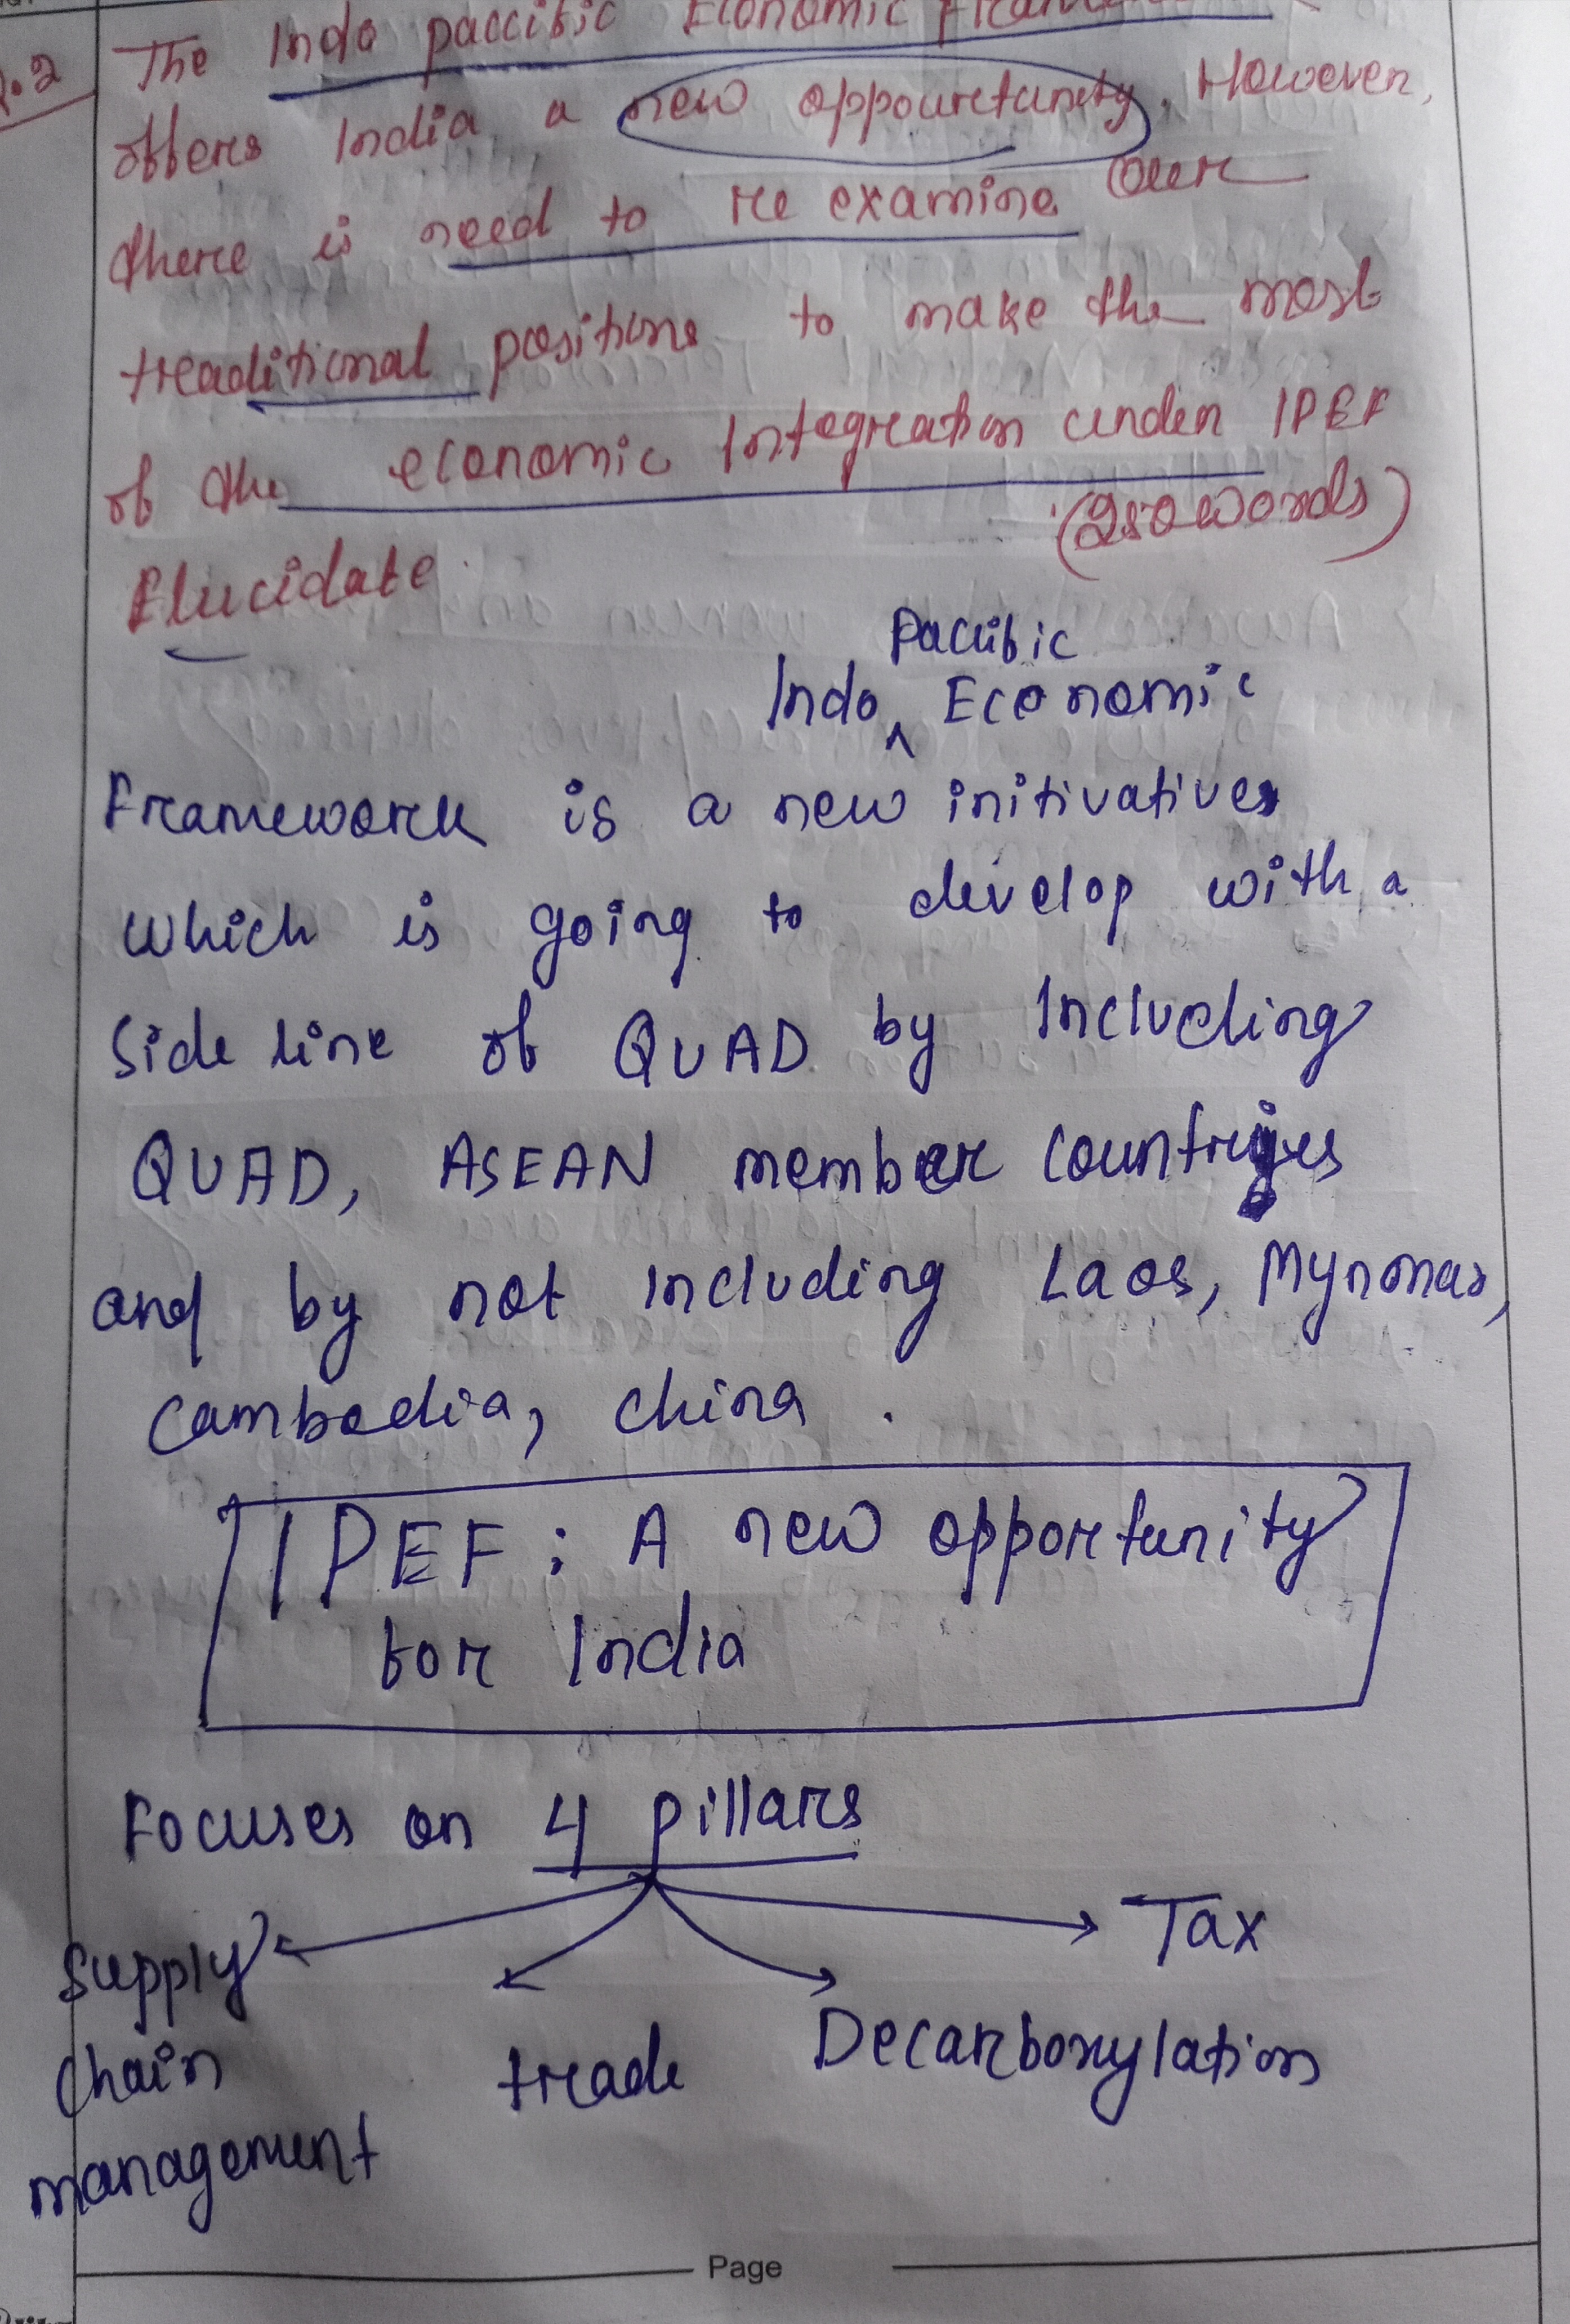 Q.2
The Indo paccific Economic
offers India a new oppourtunity. However,
there is need to re examine our
traditional positions to make the most
of the economic Integration under IPEF
(250 words)
Elucidate.
Paccific
Indo ^ Economic
Framework is a new initivatives
which is going to develop with a
side line of QUAD by Including
QUAD, ASEAN member countries
and by not including Laos, Mynmar,
Cambodia, China.
IPEF : A new opportunity
for India
Focuses on 4 pillars
Supply
chain
management
trade
Decarboxylation
Tax
Page